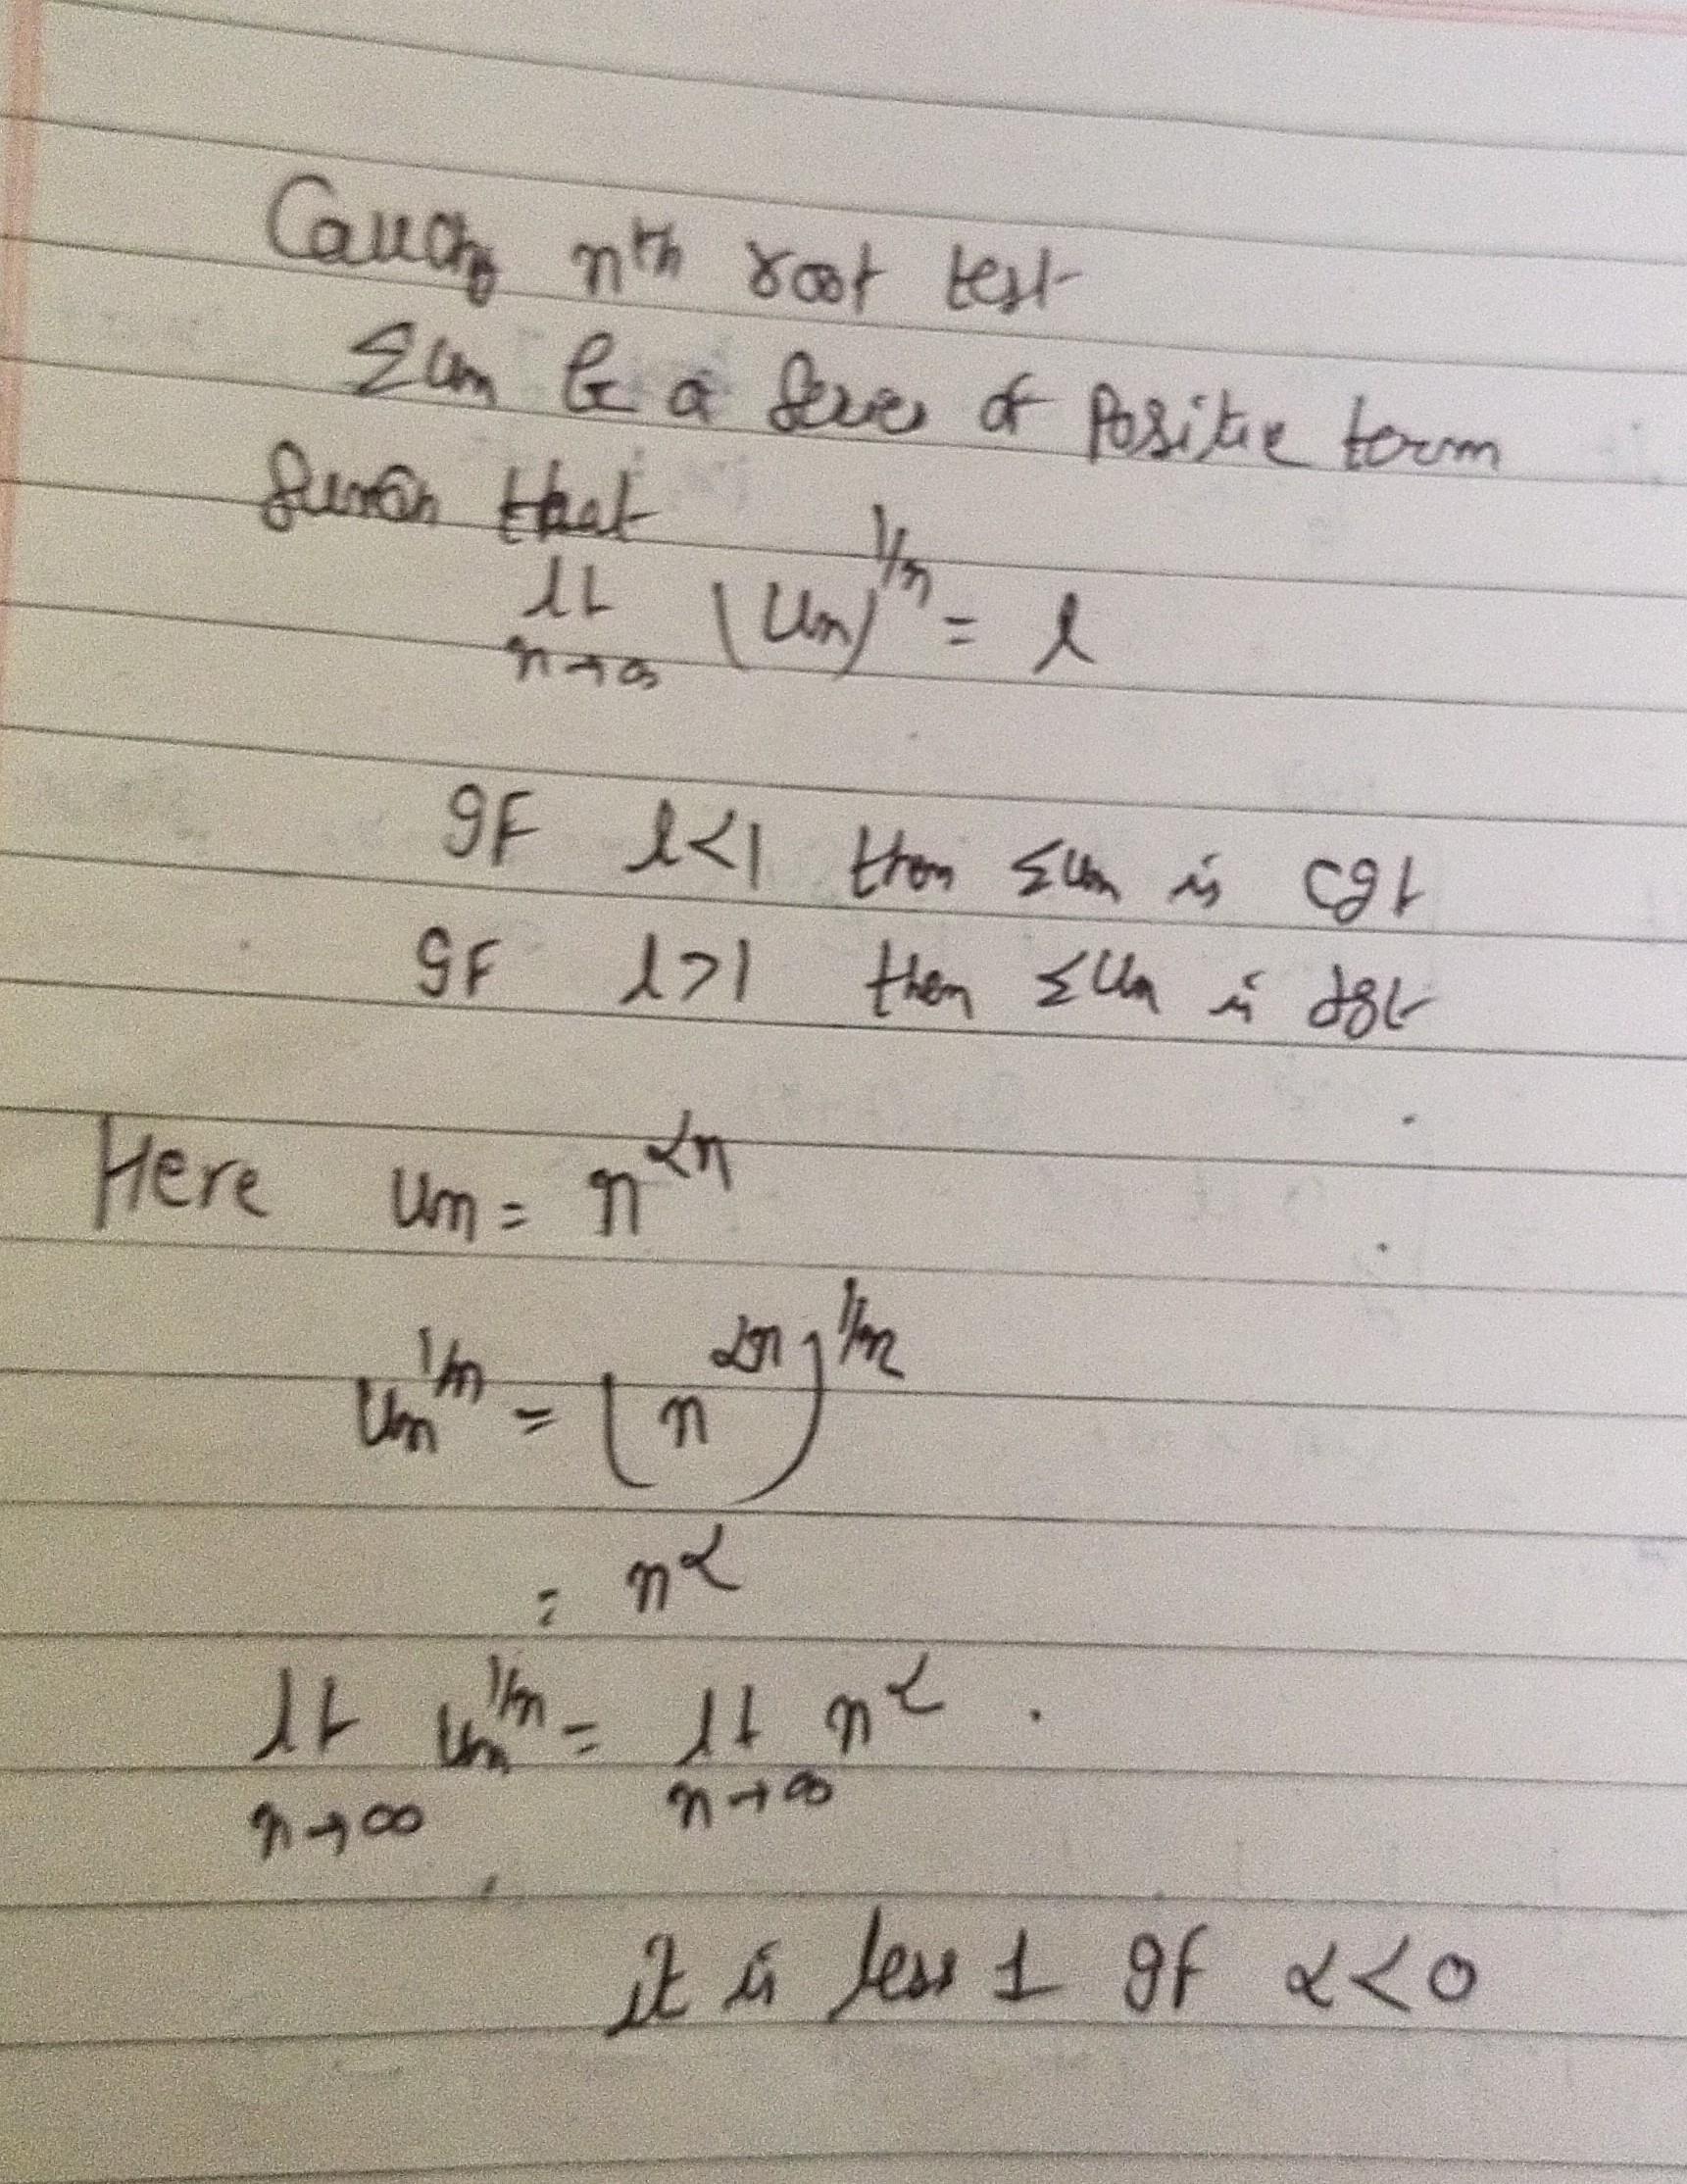 Cauchy nth root test
Σun be a series of Positive term
such that
lt (un)^1/n = l
n→∞
If l<1 then Σun is cgt
If l>1 then Σun is dgt
Here un = n^αn
un^1/n = (n^αn)^1/n
= n^α
lt un^1/n = lt n^α .
n→∞ n→∞
it is less 1 If α<0